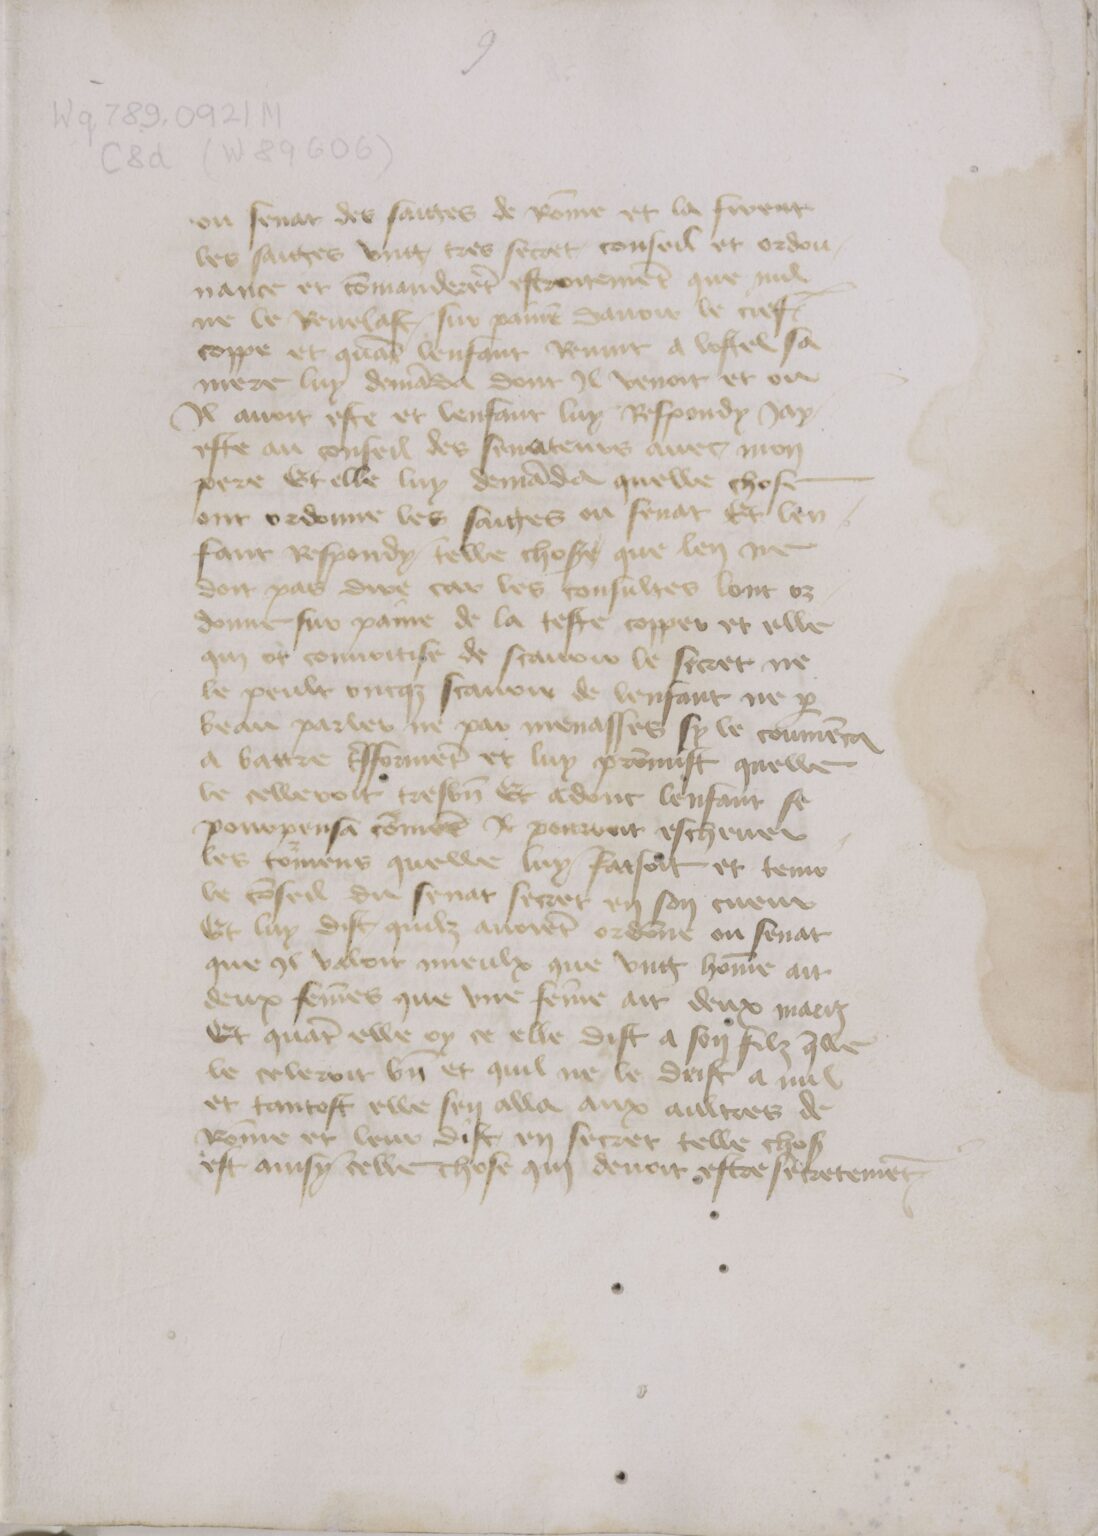 9
Wq 789.0921M
C8d (W89606)
ou senat des saiges de Rōme et la firent
les saiges vng tres secret conseil et ordon
nance et cōmanderēt estroitemēt que nul
ne le Revelast sur paine davoir le cief
coppe et quāt lenfant Revint a lostel sa
mere luy demāda dont Il venoit et ou
Il avoit este et lenfant luy Respondy Jay
este au conseil des senateurs avec mon
pere Et elle luy demāda quelle chose
ont ordonne les saiges ou senat Et len
fant Respondy telle chose que len ne
doit pas dire car les consultes lont or
donne sur paine de la teste copper et elle
qui ot convoitise de scavoir le secret ne
le peult oncqz scavoir de lenfant ne p̄
beau parler ne par menasses sy le commēca
a battre formēt et luy promist quelle
le celleroit tresbn̄ Et adonc lenfant se
pourpensa cōmēt Il pourroit eschever
les tōmens quelle luy faisoit et tenir
le cōseil du senat secret en son cueur
Et luy dist quilz avoiēt ordōne ou senat
que Il valoit mieulx que vng hōme ait
deux femēs que vne femē ait deux maritz
Et quāt elle oy ce elle dist a son filz q̄lle
le celeroit bn̄ et quil ne le deist a nul
et tantost elle sen alla aux aultres de
Rōme et leur dist en secret telle chos
est ainsy celle chose qui devoit estre secretemēt